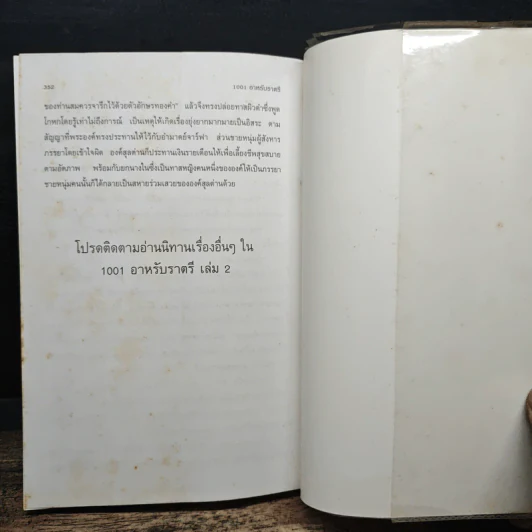 352
1001 อาหรับราตรี
ของท่านสมควรจารึกไว้ด้วยตัวอักษรทองคำ" แล้วจึงทรงปล่อยทาสผิวดำซึ่งพูด
โกหกโดยรู้เท่าไม่ถึงการณ์ เป็นเหตุให้เกิดเรื่องยุ่งยากมากมายเป็นอิสระ ตาม
สัญญาที่พระองค์ทรงประทานให้ไว้กับอำมาตย์จาร์ฟา ส่วนชายหนุ่มผู้สังหาร
ภรรยาโดยเข้าใจผิด องค์สุลต่านก็ประทานเงินรายเดือนให้เพื่อเลี้ยงชีพสุขสบาย
ตามอัตภาพ พร้อมกับยกนางในซึ่งเป็นทาสหญิงคนหนึ่งขององค์ให้เป็นภรรยา
ชายหนุ่มคนนั้นก็ได้กลายเป็นสหายร่วมเสวยขององค์สุลต่านด้วย
โปรดติดตามอ่านนิทานเรื่องอื่นๆ ใน
1001 อาหรับราตรี เล่ม 2